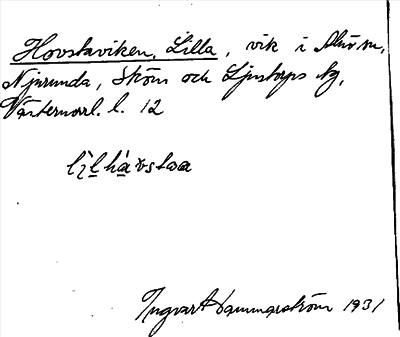 Hovstaviken, Lilla, vik i
Njurunda, Sköns och Ljustorps tg,
Västernorrl. l. 12
Ingvar Hammarström 1931